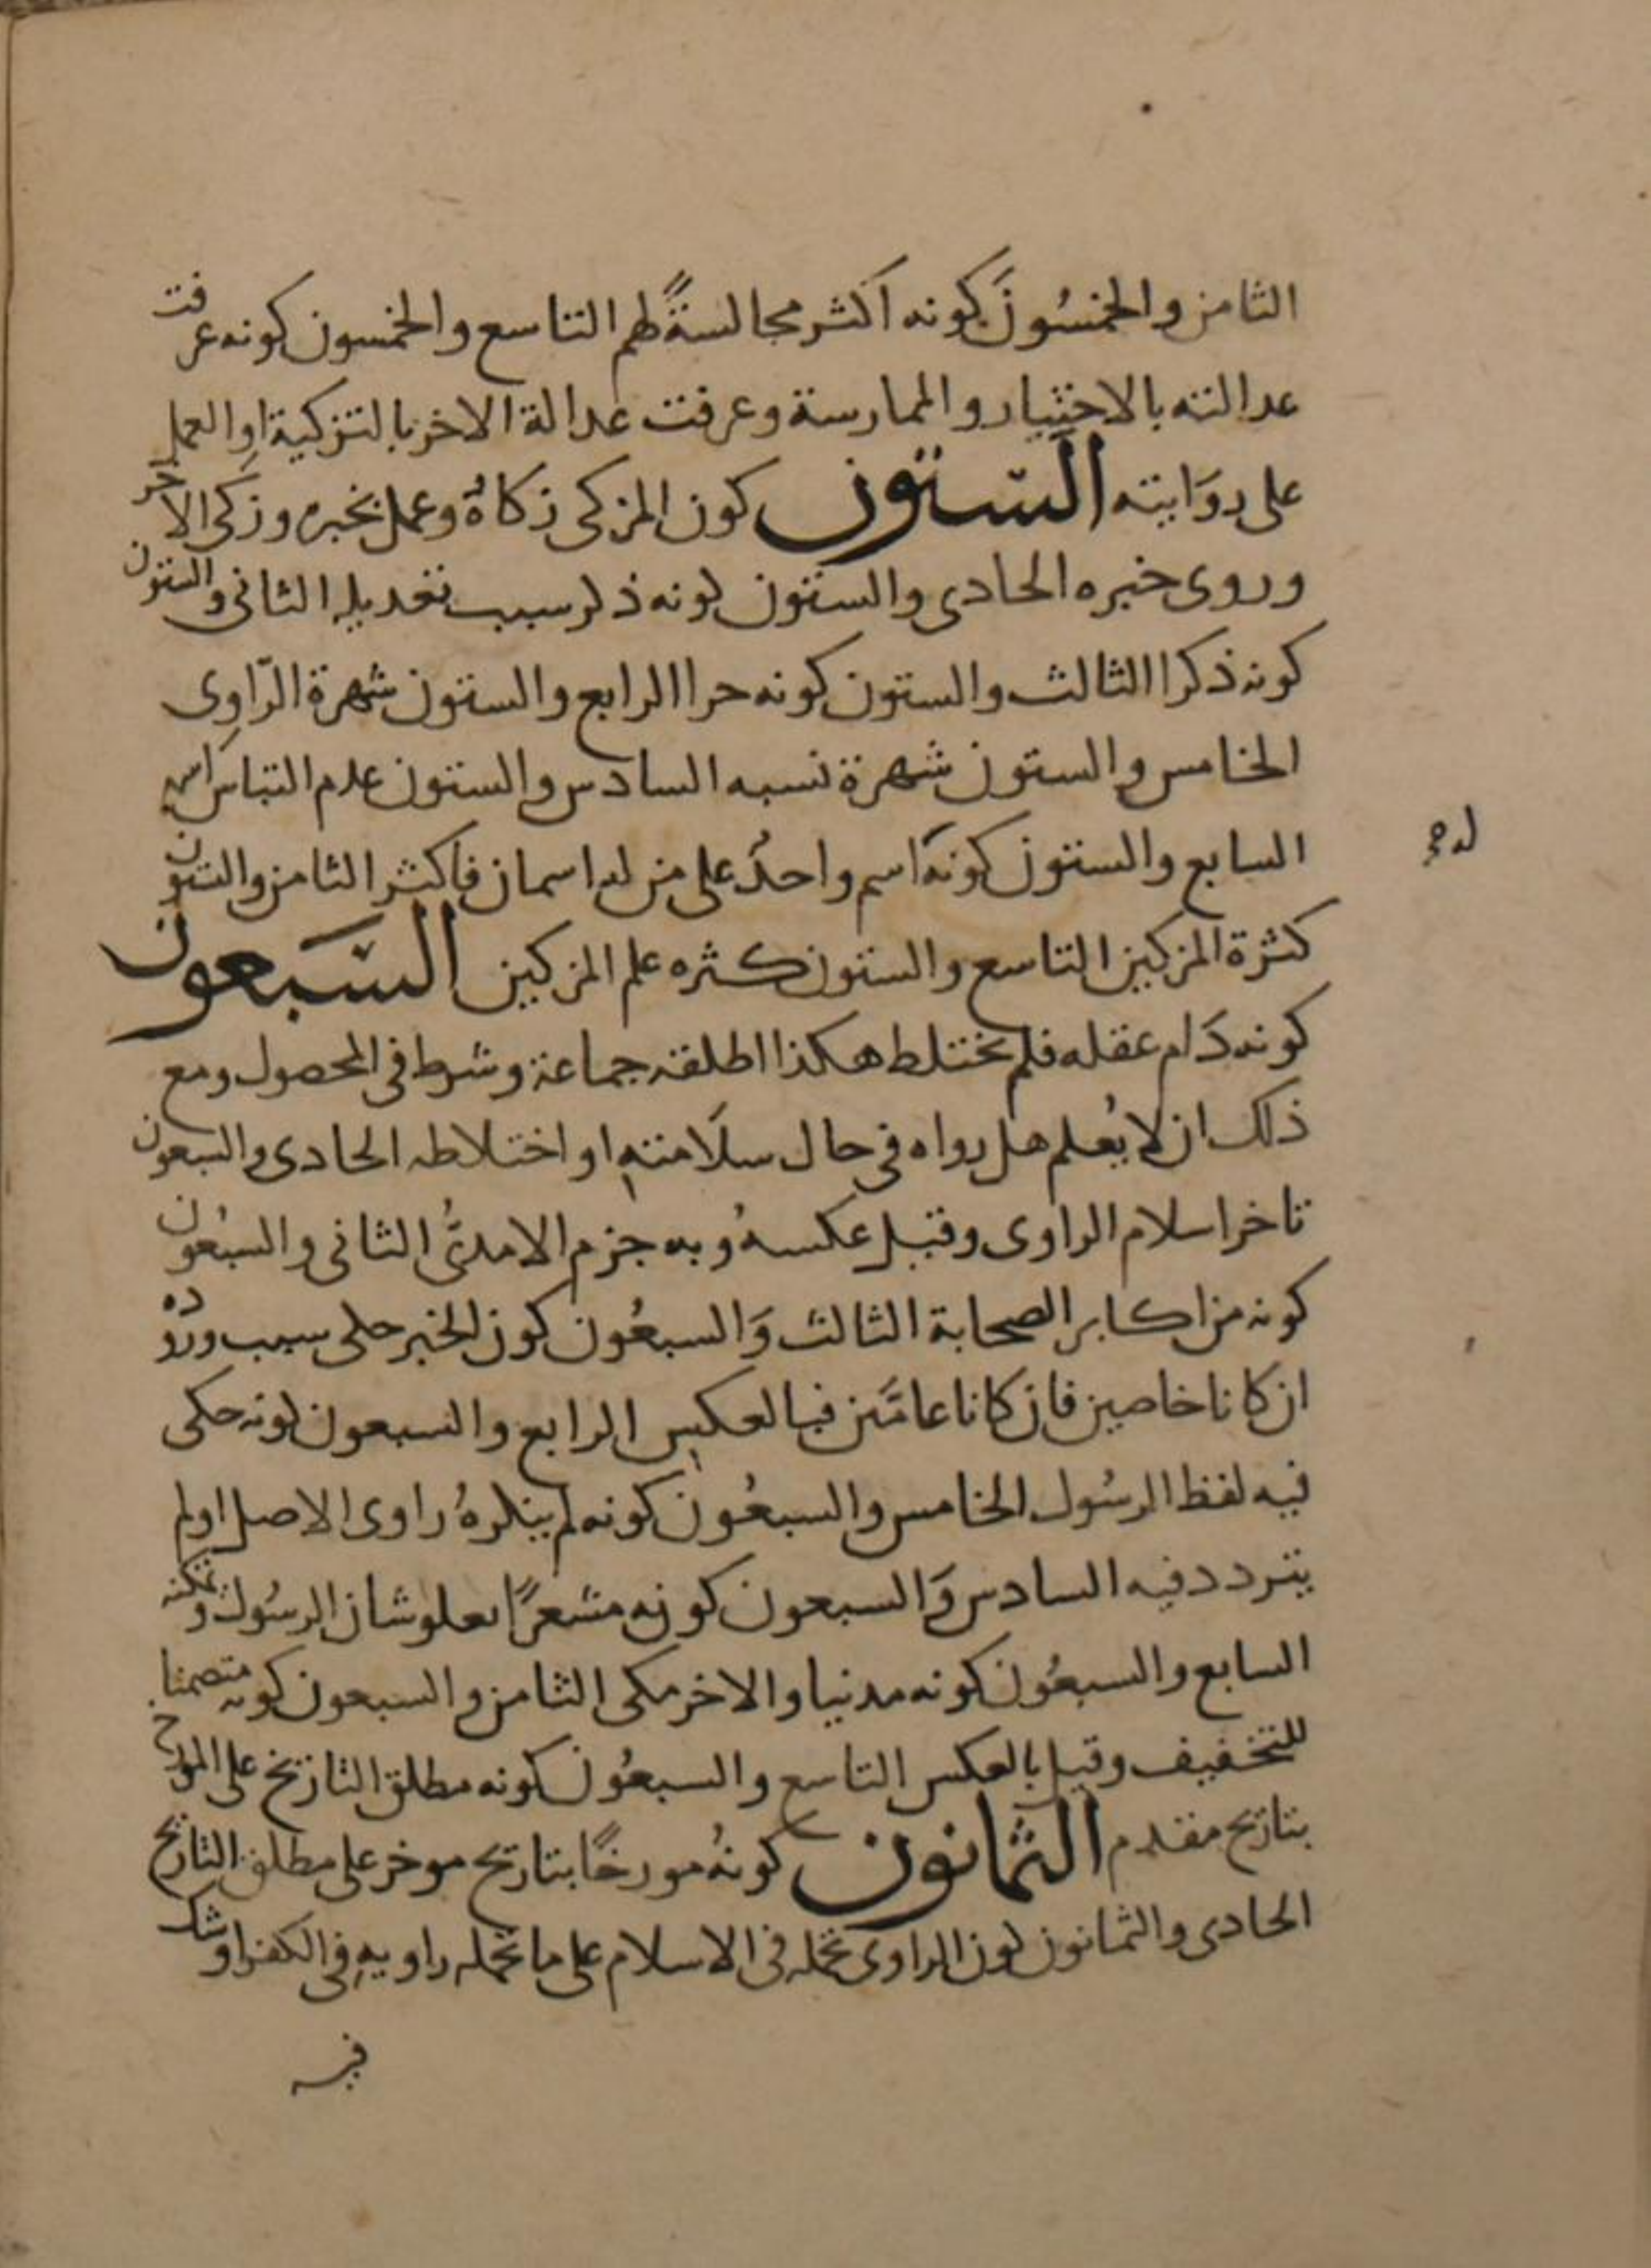 الثامن والخمسُونَ كونه أكثر مجالسةً لهم التاسع والخمسون كونه عرفت
عدالته بالاختبار والممارسة وعرفت عدالة الاخر بالتزكية او العمل
على روَايته السّتون كون المزكى زكاهُ وعمل بخبره وزكى الاخر
وروى خبره الحادى والستون كونه ذكر سبب تعديله الثانى والستون
كونه ذكرا الثالث والستون كونه حرا الرابع والستون شهرة الرّاوِى
الخامس والستون شهرة نسبه السادس والستون عدم التباس اسمه
السابع والستون كونه اسم واحدٌ على من له اسمان فاكثر الثامن والستون
كثرة المزكين التاسع والستون كثره علم المزكين السّبعون
كونه دَام عقله فلم يختلط هكذا اطلقه جماعة وشرط فى المحصول ومع
ذلك ان لا يُعلم هل رواه فى حال سلَامته او اختلاطه الحادى والسبعون
تاخر اسلام الراوى وقيل عكسهُ وبه جزم الامدىُّ الثانى والسبعُون
كونه من اكابر الصحابة الثالث وَالسبعُون كون الخبر حكى سبب ورُوده
ان كانا خاصين فان كانا عامَّين فبالعكس الرابع والسبعون كونه حكى
فيه لفظ الرسُول الخامس والسبعُون كونه لم ينكرهُ راوى الاصل او لم
يتردد فيه السادس وَالسبعون كونه مشعرًا بعلو شان الرسُول وتمكنه
السابع والسبعُون كونه مدنيا والاخر مكى الثامن والسبعون كونه متضمنا
للتخفيف وقيل بالعكس التاسع والسبعُون كونه مطلق التاريخ على المورخ
بتاريخ مقدم الثمانون كونهُ مورخًا بتاريخ موخر على مطلق التاريخ
الحادى والثمانون كون الراوى تحمله فى الاسلام على ما تحمله راويه فى الكفر او شك
فيه